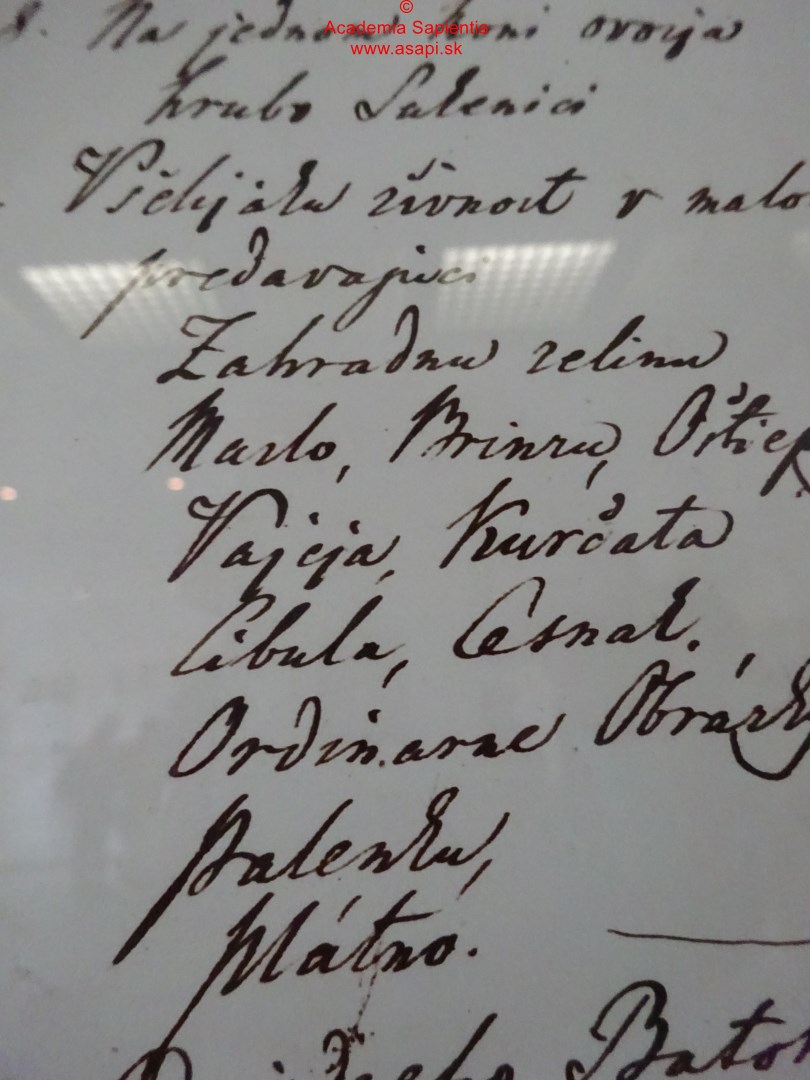 ©
Academia Sapientia
www.asapi.sk
8. Na jednom koni ovocja
hrubo Sukenici
Všelijaku živnost v malo
predavajuci
Zahradnu zelinu
Maslo, Brinzu, Oštiep
Vajcja, Kurčata
Cibula, Cesnak.
Ordinarne Obrázk
Palenku,
Plátno.
Batoh